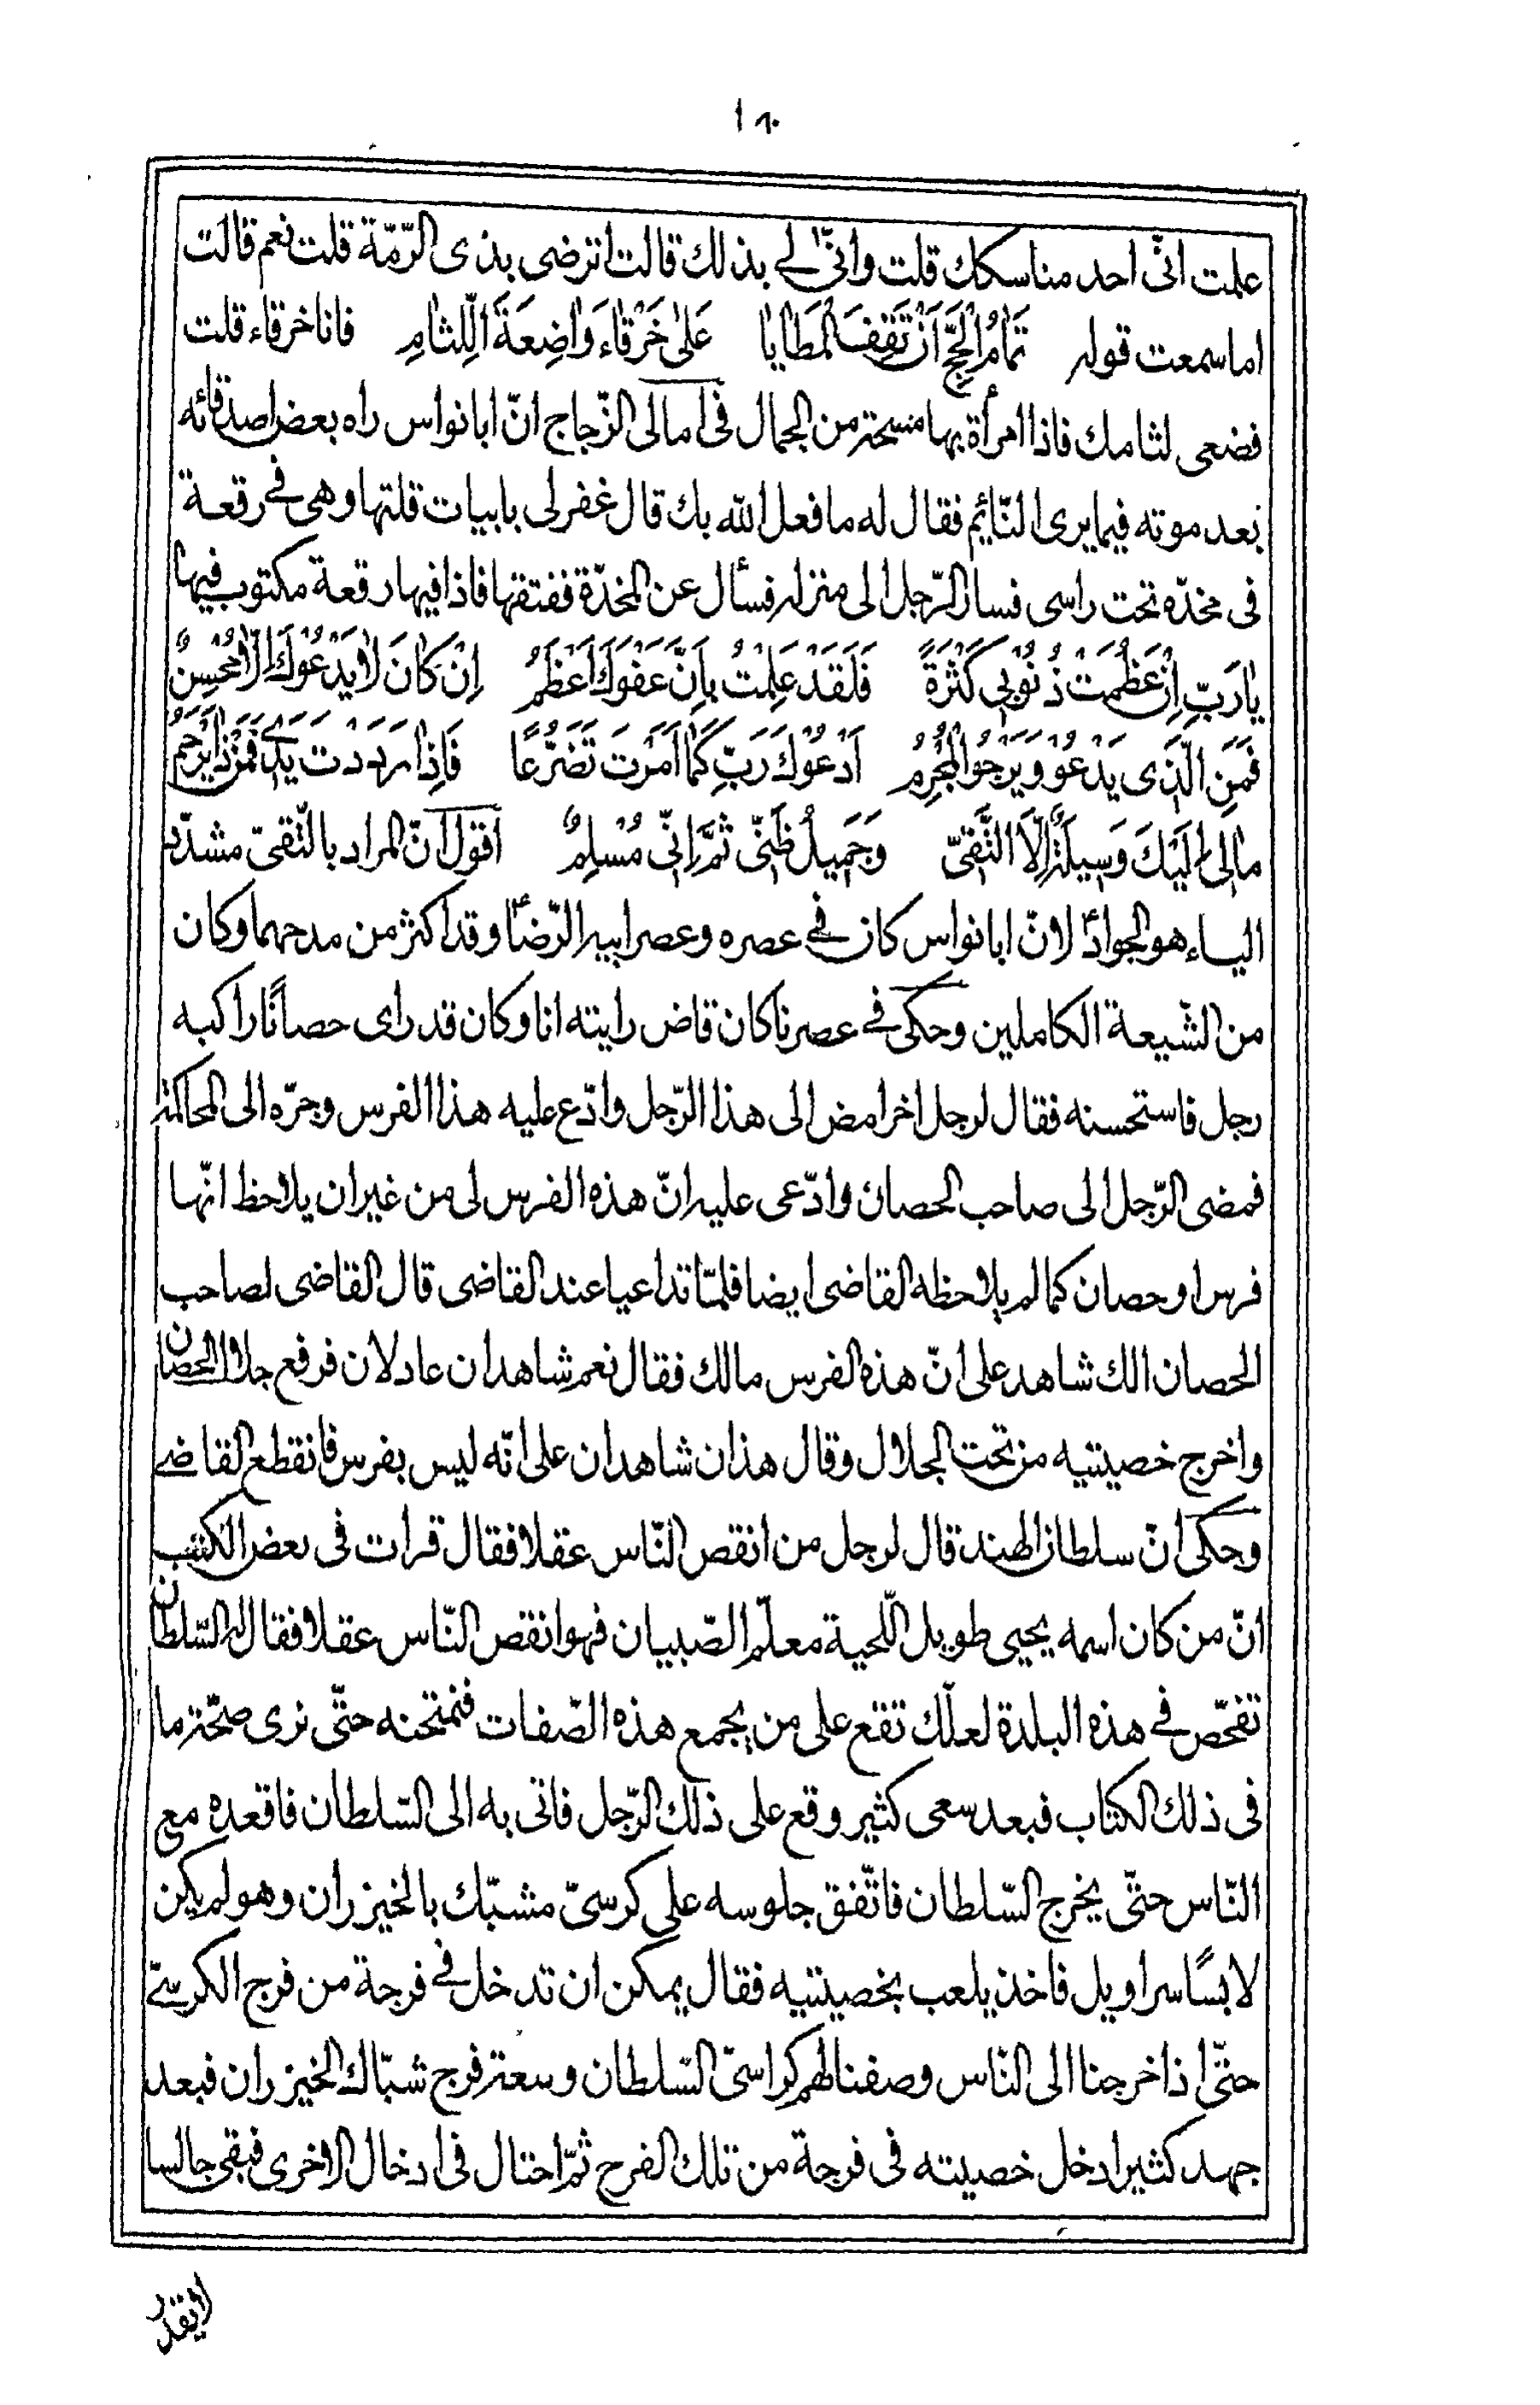 ١٨٠
علمت انّى احد مناسكك قلت وانّى لى بذلك قالت اترضى بذى الرّمّة قلت نعم قالت
اما سمعت قوله تَمٰامُ الْحَجِّ اَنْ تَقِفَ الْمَطٰايٰا عَلىٰ خَرْقٰاءَ وٰاضِعَةَ اللِّثٰامِ فانا خرقاء قلت
فضعى لثامك فاذا امرأة بها مسحة من الجمال فى امالى الزّجاج انّ ابا نواس راه بعض اصدقائه
بعد موته فيما يرى النّائم فقال له ما فعل الله بك قال غفر لى بابيات قلتها وهى فى رقعة
فى مخدّه تحت راسى فسار الرّجل الى منزله فسأل عن المخدّة ففتقها فاذا فيها رقعة مكتوب فيها
يٰا رَبِّ اِنْ عَظُمَتْ ذُنُوْبِى كَثْرَةً فَلَقَدْ عَلِمْتُ بِاَنَّ عَفْوَكَ اَعْظَمُ اِنْ كٰانَ لٰا يَدْعُوْكَ اِلّٰا مُحْسِنٌ
فَمَنِ الَّذِى يَدْعُوْ وَيَرْجُوْ الْمُجْرِمُ اَدْعُوْكَ رَبِّ كَمٰا اَمَرْتَ تَضَرُّعًا فَاِذٰا رَدَدْتَ يَدِىْ فَمَنْ ذٰا يَرْحَمُ
مٰالِى اِلَيْكَ وَسِيلَةٌ اِلَّا التَّقِىّ وَجَمِيلُ ظَنِّى ثُمَّ اِنِّى مُسْلِمٌ اقول انّ المراد بالتّقىّ مشدّد
الياء هو الجوادؑ لانّ ابا نواس كان فى عصره وعصر ابيه الرّضاؑ وقد اكثر من مدحهما وكان
من الشّيعة الكاملين وحكى فى عصرنا كان قاض رايته انا وكان قد راى حصانًا راكبه
رجل فاستحسنه فقال لرجل اخر امض الى هذا الرّجل وادّع عليه هذا الفرس وجرّه الى المحاكمة
فمضى الرّجل الى صاحب الحصان وادّعى عليه انّ هذه الفرس لى من غير ان يلاحظ انّها
فرس او حصان كما لم يلاحظه القاضى ايضا فلمّا تداعيا عند القاضى قال القاضى لصاحب
الحصان الك شاهد على انّ هذه الفرس مالك فقال نعم شاهدان عادلان فرفع جلال الحصان
واخرج خصيتيه من تحت الجلال وقال هذان شاهدان على انّه ليس بفرس فانقطع القاضى
وحكى انّ سلطان الهند قال لرجل من انقص النّاس عقلا فقال قرات فى بعض الكتب
انّ من كان اسمه يحيى طويل اللّحية معلّم الصّبيان فهو انقص النّاس عقلا فقال له السّلطان
تفحّص فى هذه البلدة لعلّك تقع على من يجمع هذه الصّفات فنمتحنه حتّى نرى صحّة ما
فى ذلك الكتاب فبعد سعى كثير وقع على ذلك الرّجل فاتى به الى السّلطان فاقعده مع
النّاس حتّى يخرج السّلطان فاتّفق جلوسه على كرسىّ مشبّك بالخيزران وهو لم يكن
لابسًا سراويل فاخذ يلعب بخصيتيه فقال يمكن ان تدخل فى فرجة من فرج الكرسىّ
حتّى اذا خرجنا الى النّاس وصفنا لهم كراسىّ السّلطان وسعة فرج شبّاك الخيزران فبعد
جهد كثير ادخل خصيته فى فرجة من تلك الفرج ثمّ احتال فى ادخال الاخرى فبقى جالسا
لايقدر